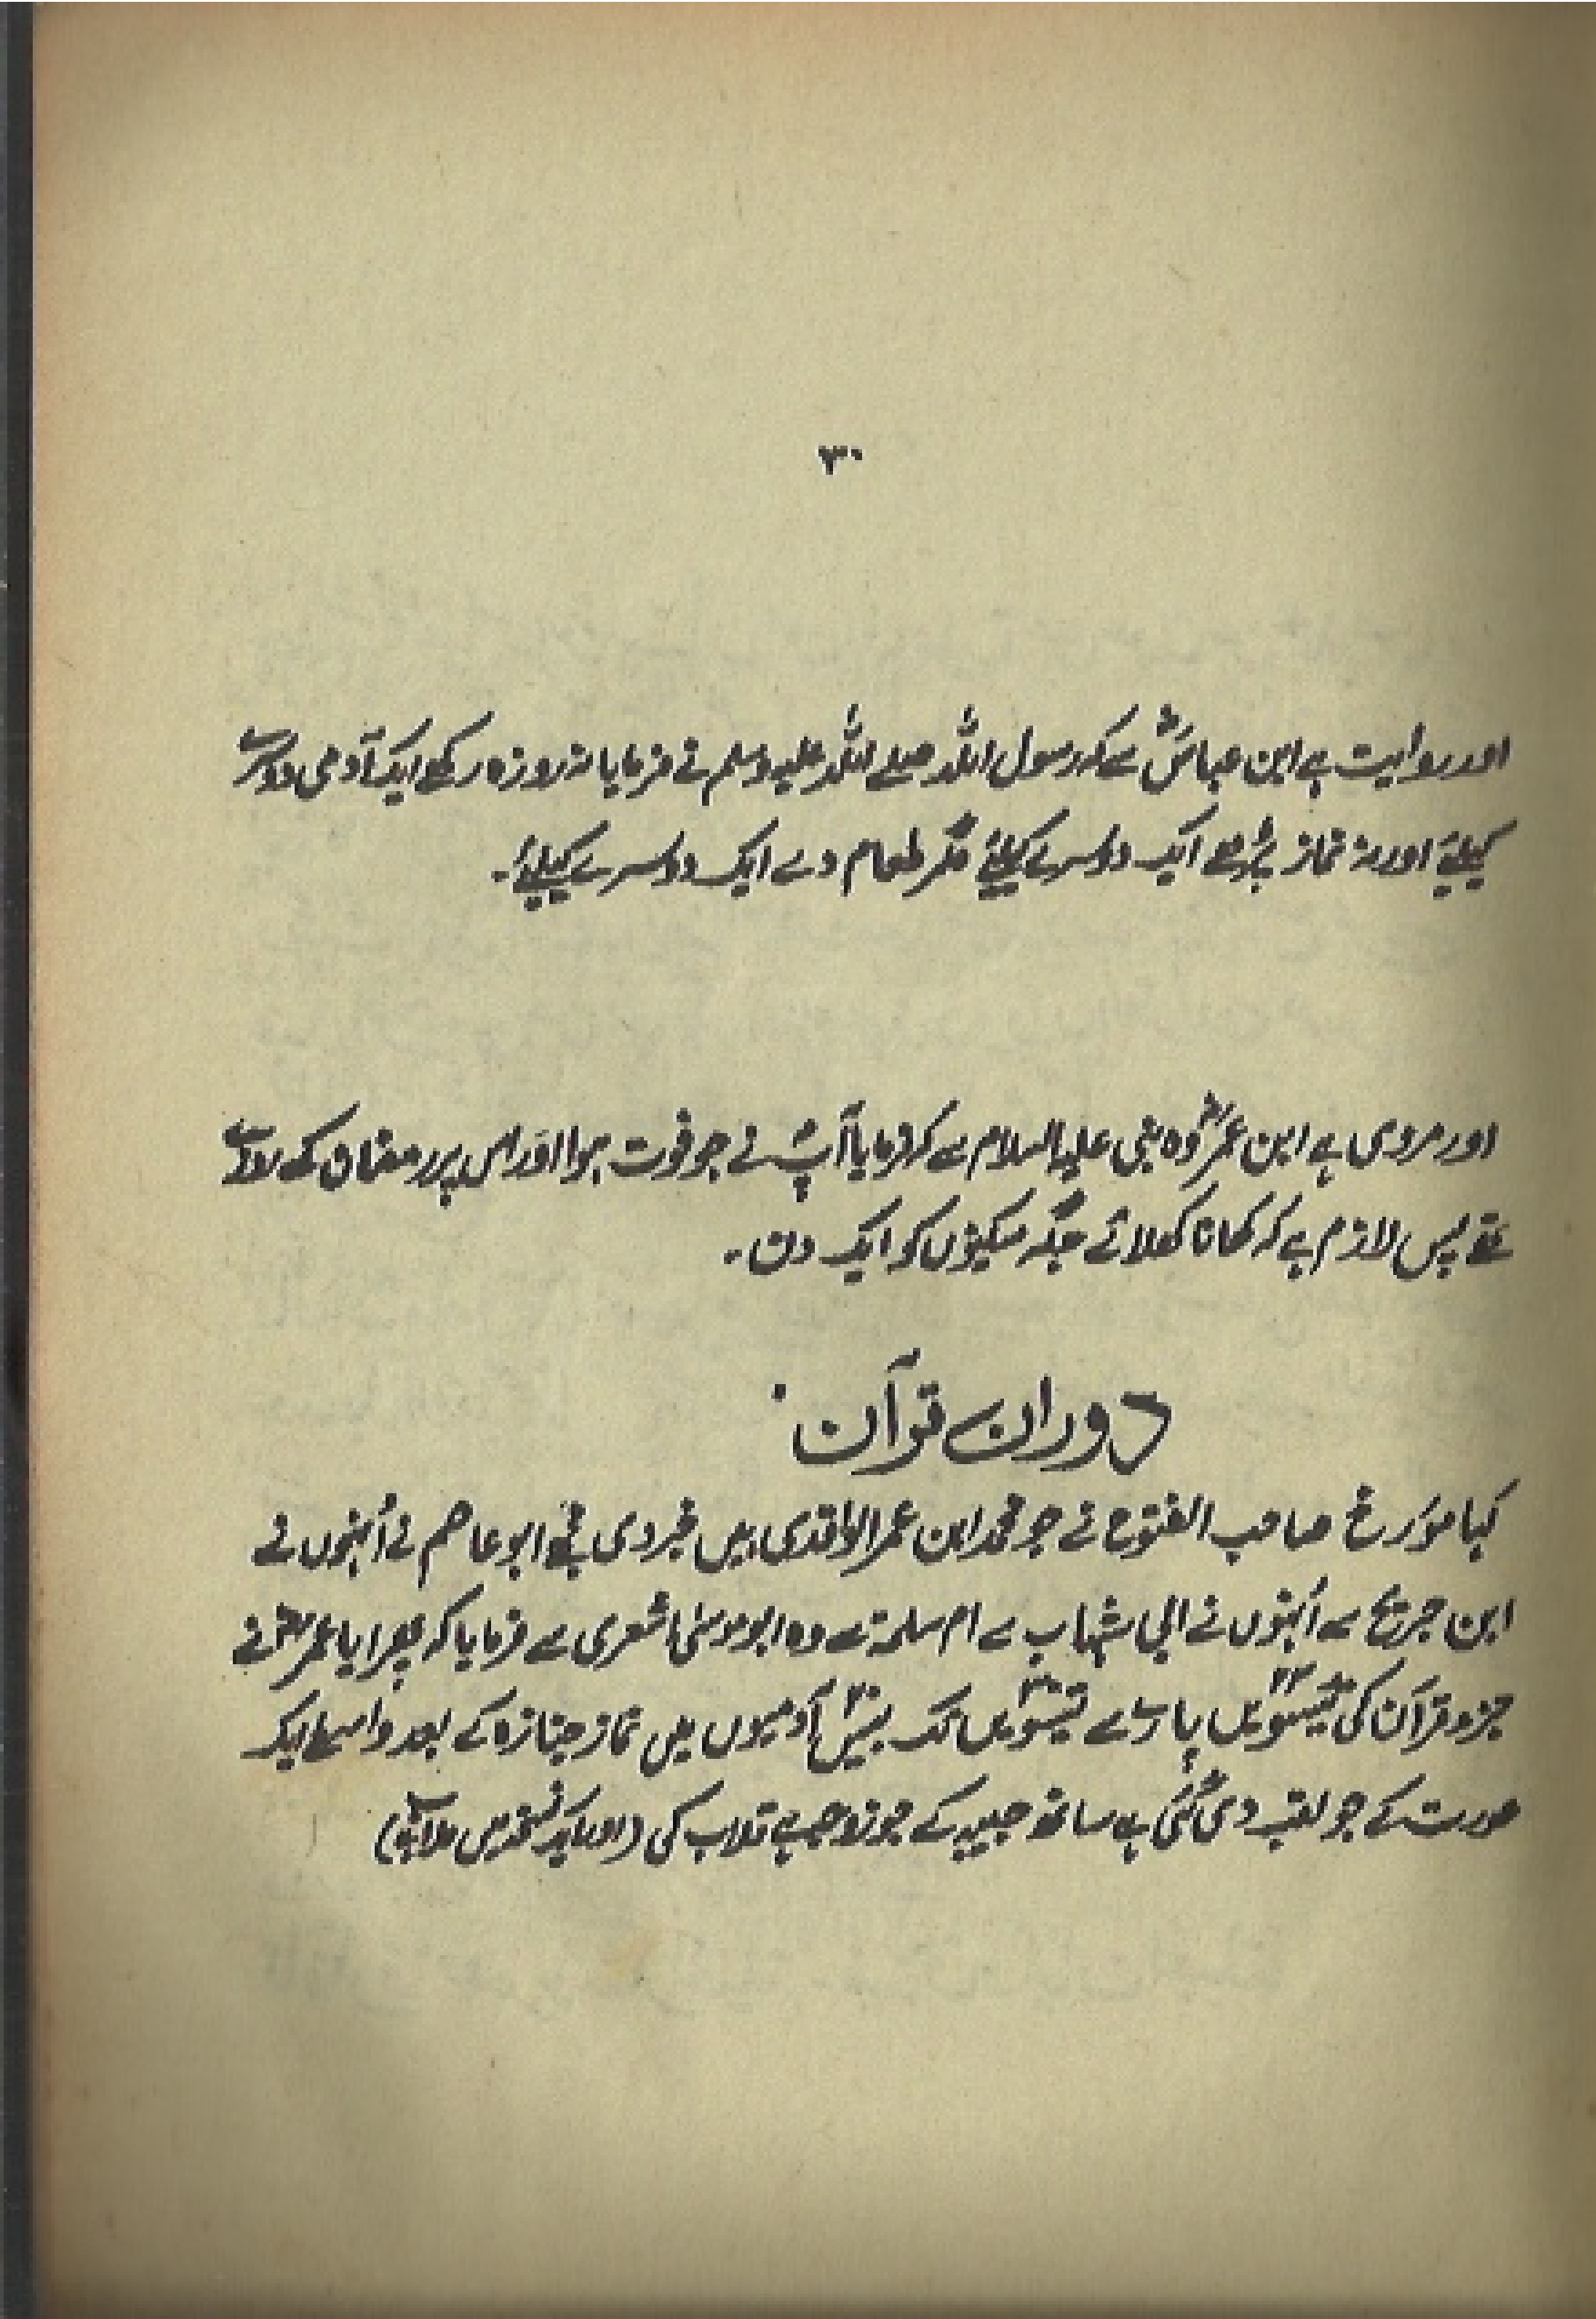 ۳۰
اور روایت ہے ابن عباسؓ سے کہ رسول اللہ صلے اللہ علیہ وسلم نے فرمایا نہ روزہ رکھے ایک آدمی دوسرے
کیلئے اور نہ نماز پڑھے ایک دوسرے کیلئے مگر طعام دے ایک دوسرے کیلئے۔
اور مروی ہے ابن عمرؓ وہ نبی علیہ السلام سے کہ فرمایا آپؐ نے جو فوت ہوا اور اس پر رمضان کے روزے
تھے پس لازم ہے کہ کھانا کھلائے جگہ مسکینوں کو ایک دن۔
دوران قرآن
کہا مؤرخ صاحب الفتوح نے جو محمد ابن عمر الواقدی ہیں خبر دی مجھے ابو عاصم نے اُنہوں نے
ابن جریج سے اُنہوں نے ابی شہاب سے ام سلمہ سے وہ ابو موسیٰ اشعری سے فرمایا کہ پھرایا عمرؓ نے
جزو قرآن کی پارے سے تیسویں تک بیس آدمیوں میں نماز جنازہ کے بعد واسطے ایک
عورت کے جو لقب دی گئی ہے ساتھ حبیبہ کے جو زوجہ ہے قلاب کی (اور ایک نسخہ میں ملاب ہے)